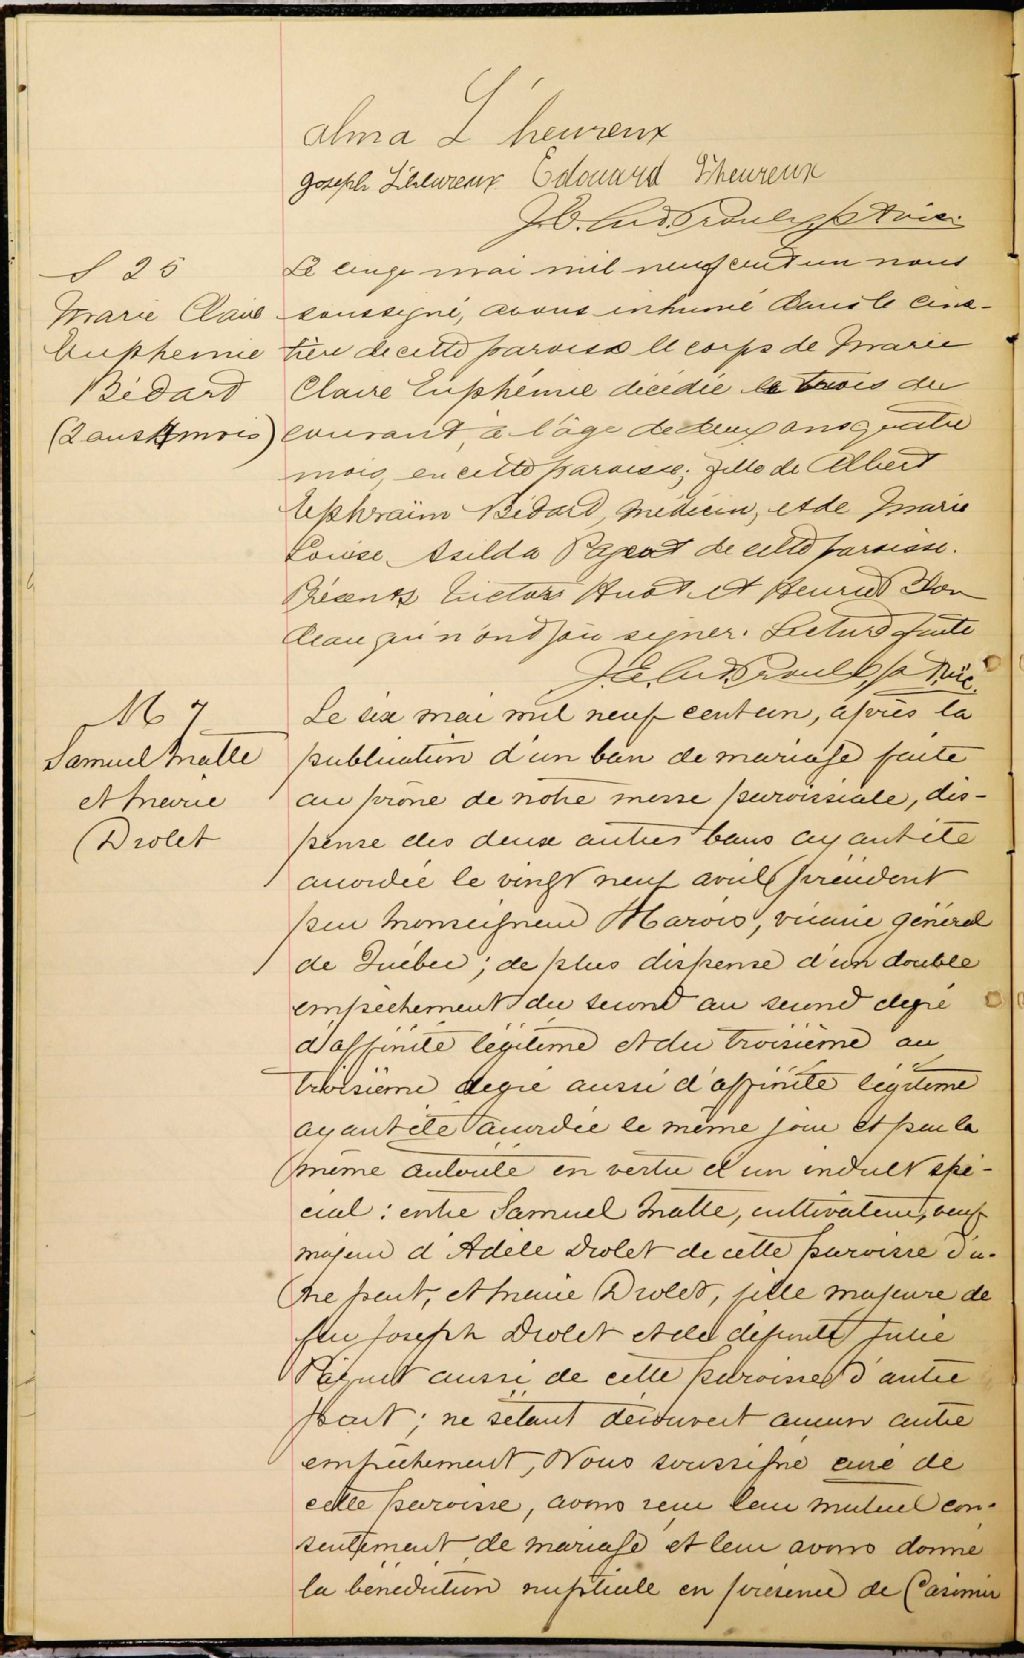 Alma L'heureux
Joseph L'Heureux Edouard L'heureux
J. E. Lud. Proulx, ptre Vic.
S 25
Marie Claire
Euphemie
Bédard
(2 ans 4 mois)
Le cinq mai mil neuf cent un nous
soussigné, avons inhumé dans le cime-
tière de cette paroisse le corps de Marie
Claire Euphémie décédée le trois du
courant, à l'âge de deux ans quatre
mois, en cette paroisse; fille de Albert
Ephraïm Bédard, médecin, et de Marie
Louise Asilda Pageot de cette paroisse.
Présents Victor Huot et Henri Blon
deau qui n'ont su signer. Lecture faite
J. E. Lud. Proulx, ptre Vic.
M 7
Samuel Matte
et Marie
Drolet
Le six mai mil neuf cent un, après la
publication d'un ban de mariage faite
au prône de notre messe paroissiale, dis-
pense des deux autres bans ayant été
accordée le vingt neuf avril précédent
par Monseigneur Marois, vicaire général
de Québec; de plus dispense d'un double
empêchement du second au second degré
d'affinité légitime et du troisième au
troisième degré aussi d'affinité légitime
ayant été accordée le même jour et par la
même autorité en vertu d'un indult spé-
cial: entre Samuel Matte, cultivateur, veuf
majeur d'Adèle Drolet de cette paroisse d'u-
ne part, et Marie Drolet, fille majeure de
feu Joseph Drolet et de défunte Julie
Paquet aussi de cette paroisse d'autre
part; ne s'étant découvert aucun autre
empêchement, Nous soussigné curé de
cette paroisse, avons reçu leur mutuel con-
sentement de mariage et leur avons donné
la bénédiction nuptiale en présence de Casimir